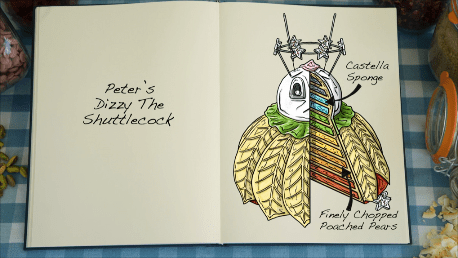 Peter's
Dizzy The
Shuttlecock
Castella
Sponge
Finely Chopped
Poached Pears